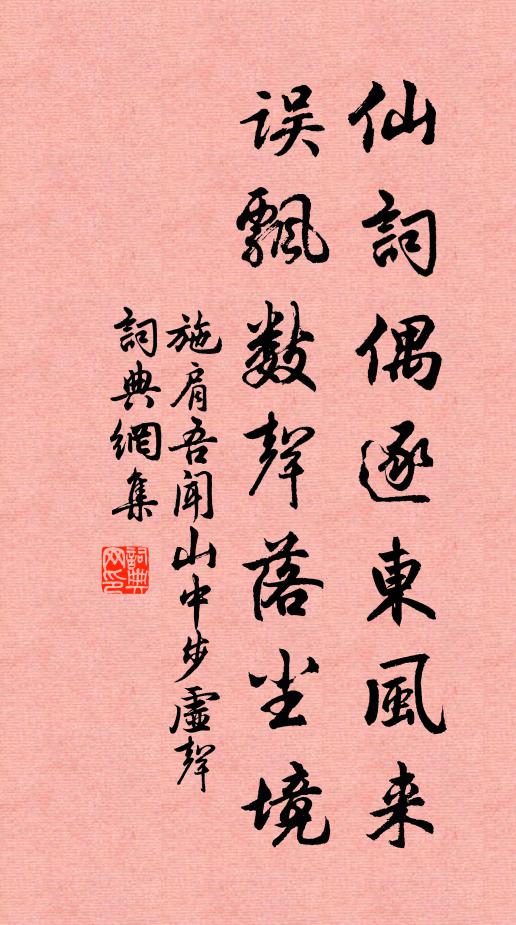 仙詞偶逐東風来
误飄数聲落尘境
施肩吾聞山中步虛聲
詞典網集
詞典网印